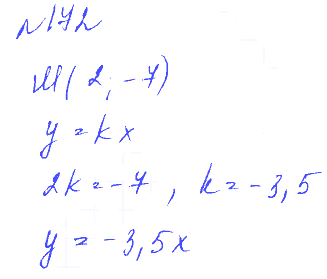 №172
M(2; -7)
y = kx
2k = -7, k = -3,5
y = -3,5x